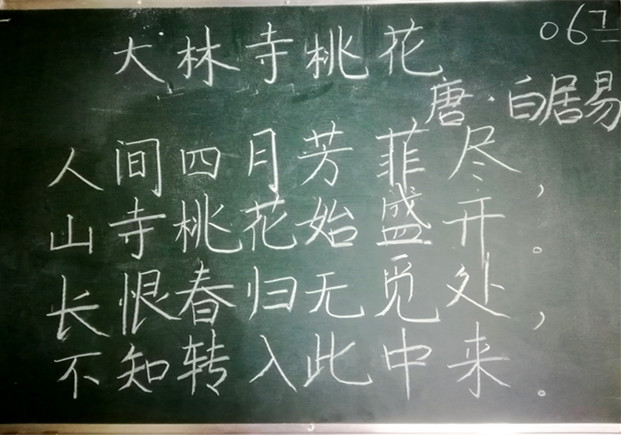 大林寺桃花
唐·白居易
人间四月芳菲尽,
山寺桃花始盛开。
长恨春归无觅处,
不知转入此中来。